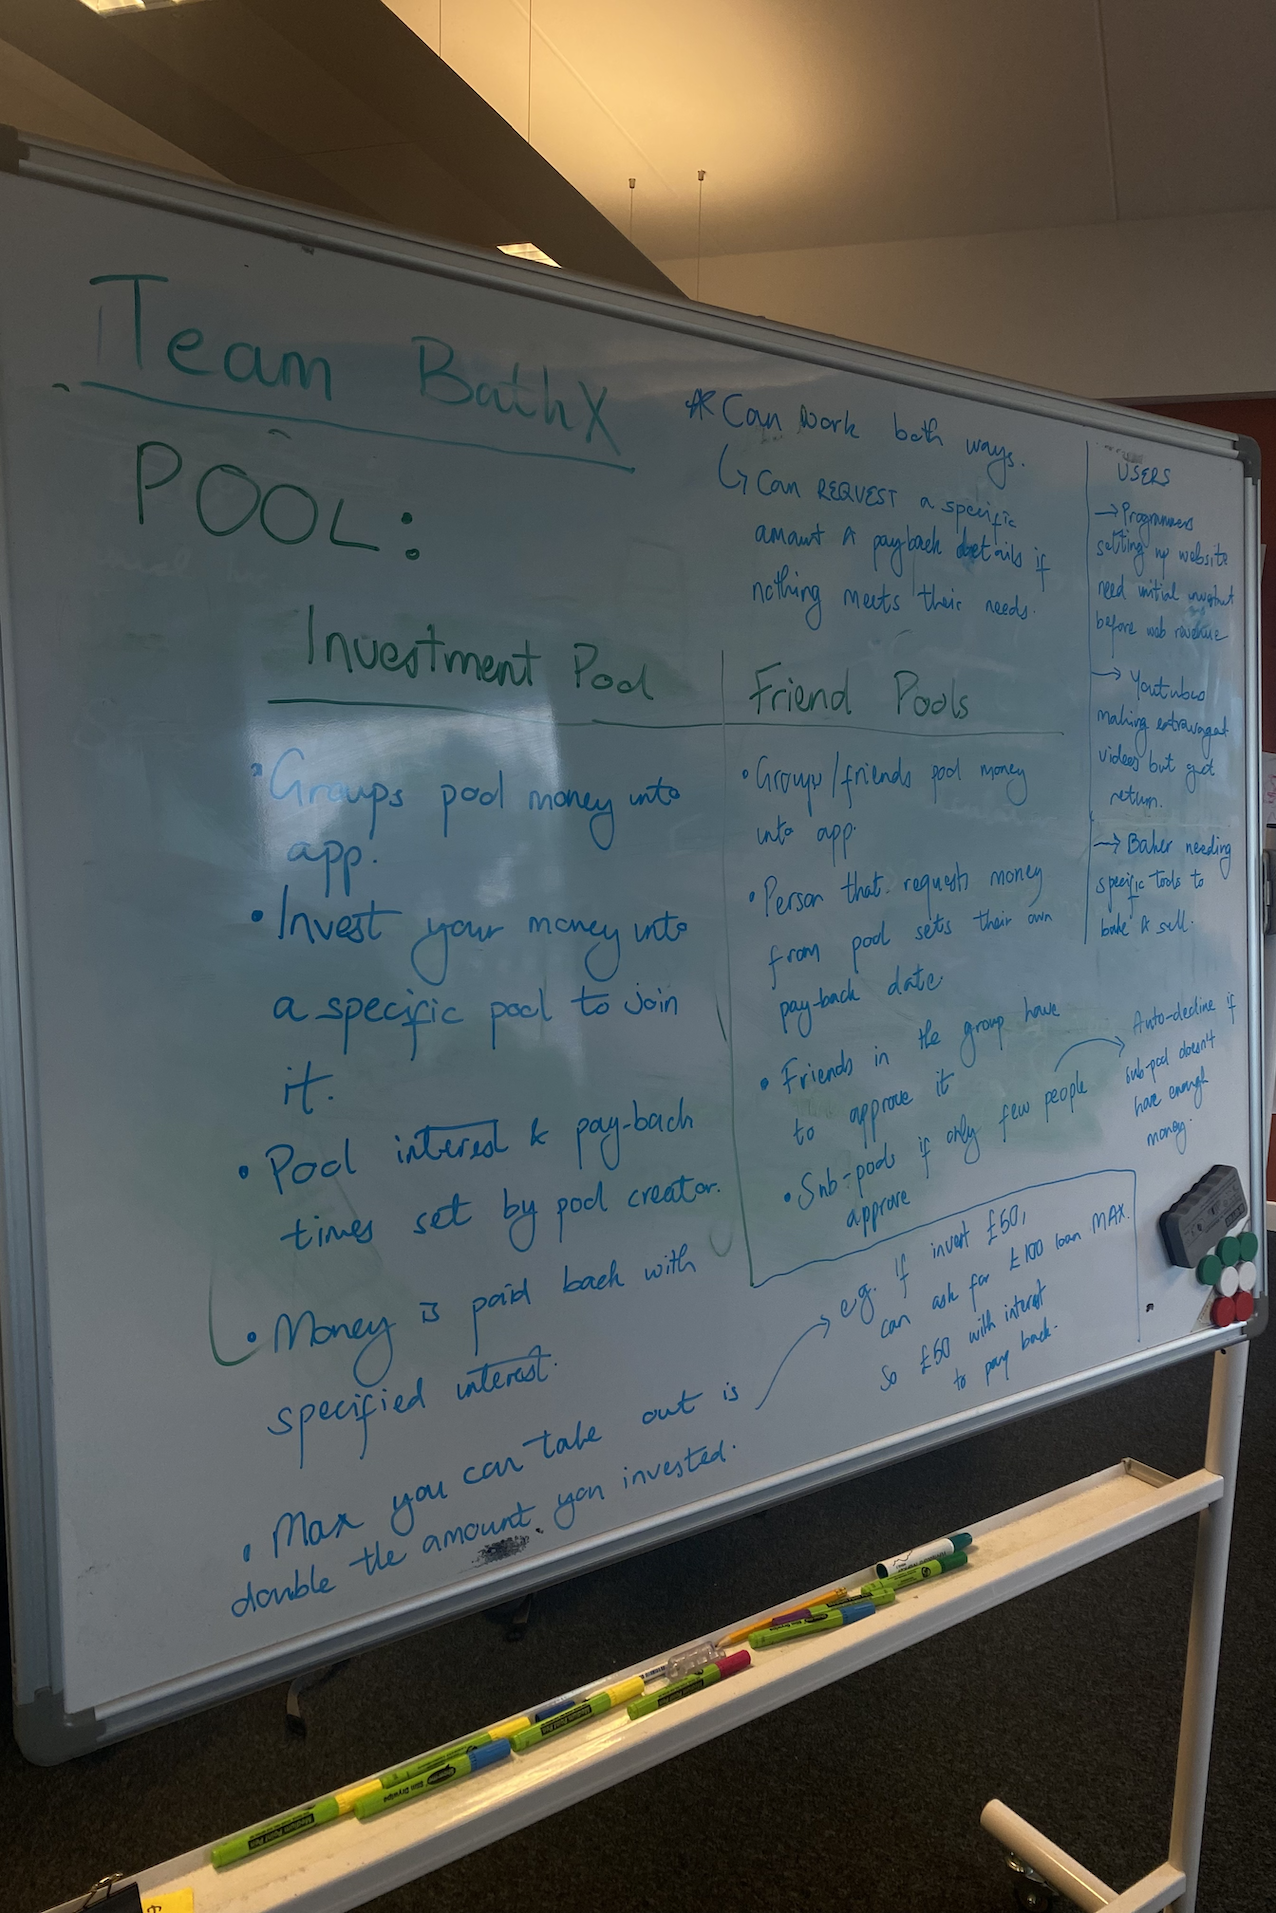 Team BathX
POOL:
* Can work both ways.
↳ Can REQUEST a specific
amount & payback details if
nothing meets their needs.
USERS
→ Programmers
setting up website
need initial investment
before web revenue
→ Youtubers
making extravagant
videos but get
return.
→ Baker needing
specific tools to
bake & sell.
Investment Pool
• Groups pool money into
app.
• Invest your money into
a specific pool to join
it.
• Pool interest & pay-back
times set by pool creator.
• Money is paid back with
specified interest.
• Max you can take out is
double the amount you invested.
→ e.g. If invest £50,
can ask for £100 loan MAX.
So £50 with interest
to pay back.
Friend Pools
• Groups/friends pool money
into app.
• Person that requests money
from pool sets their own
pay-back date
• Friends in the group have
to approve it
• Sub-pools if only few people
approve
→ Auto-decline if
sub-pool doesn't
have enough
money.